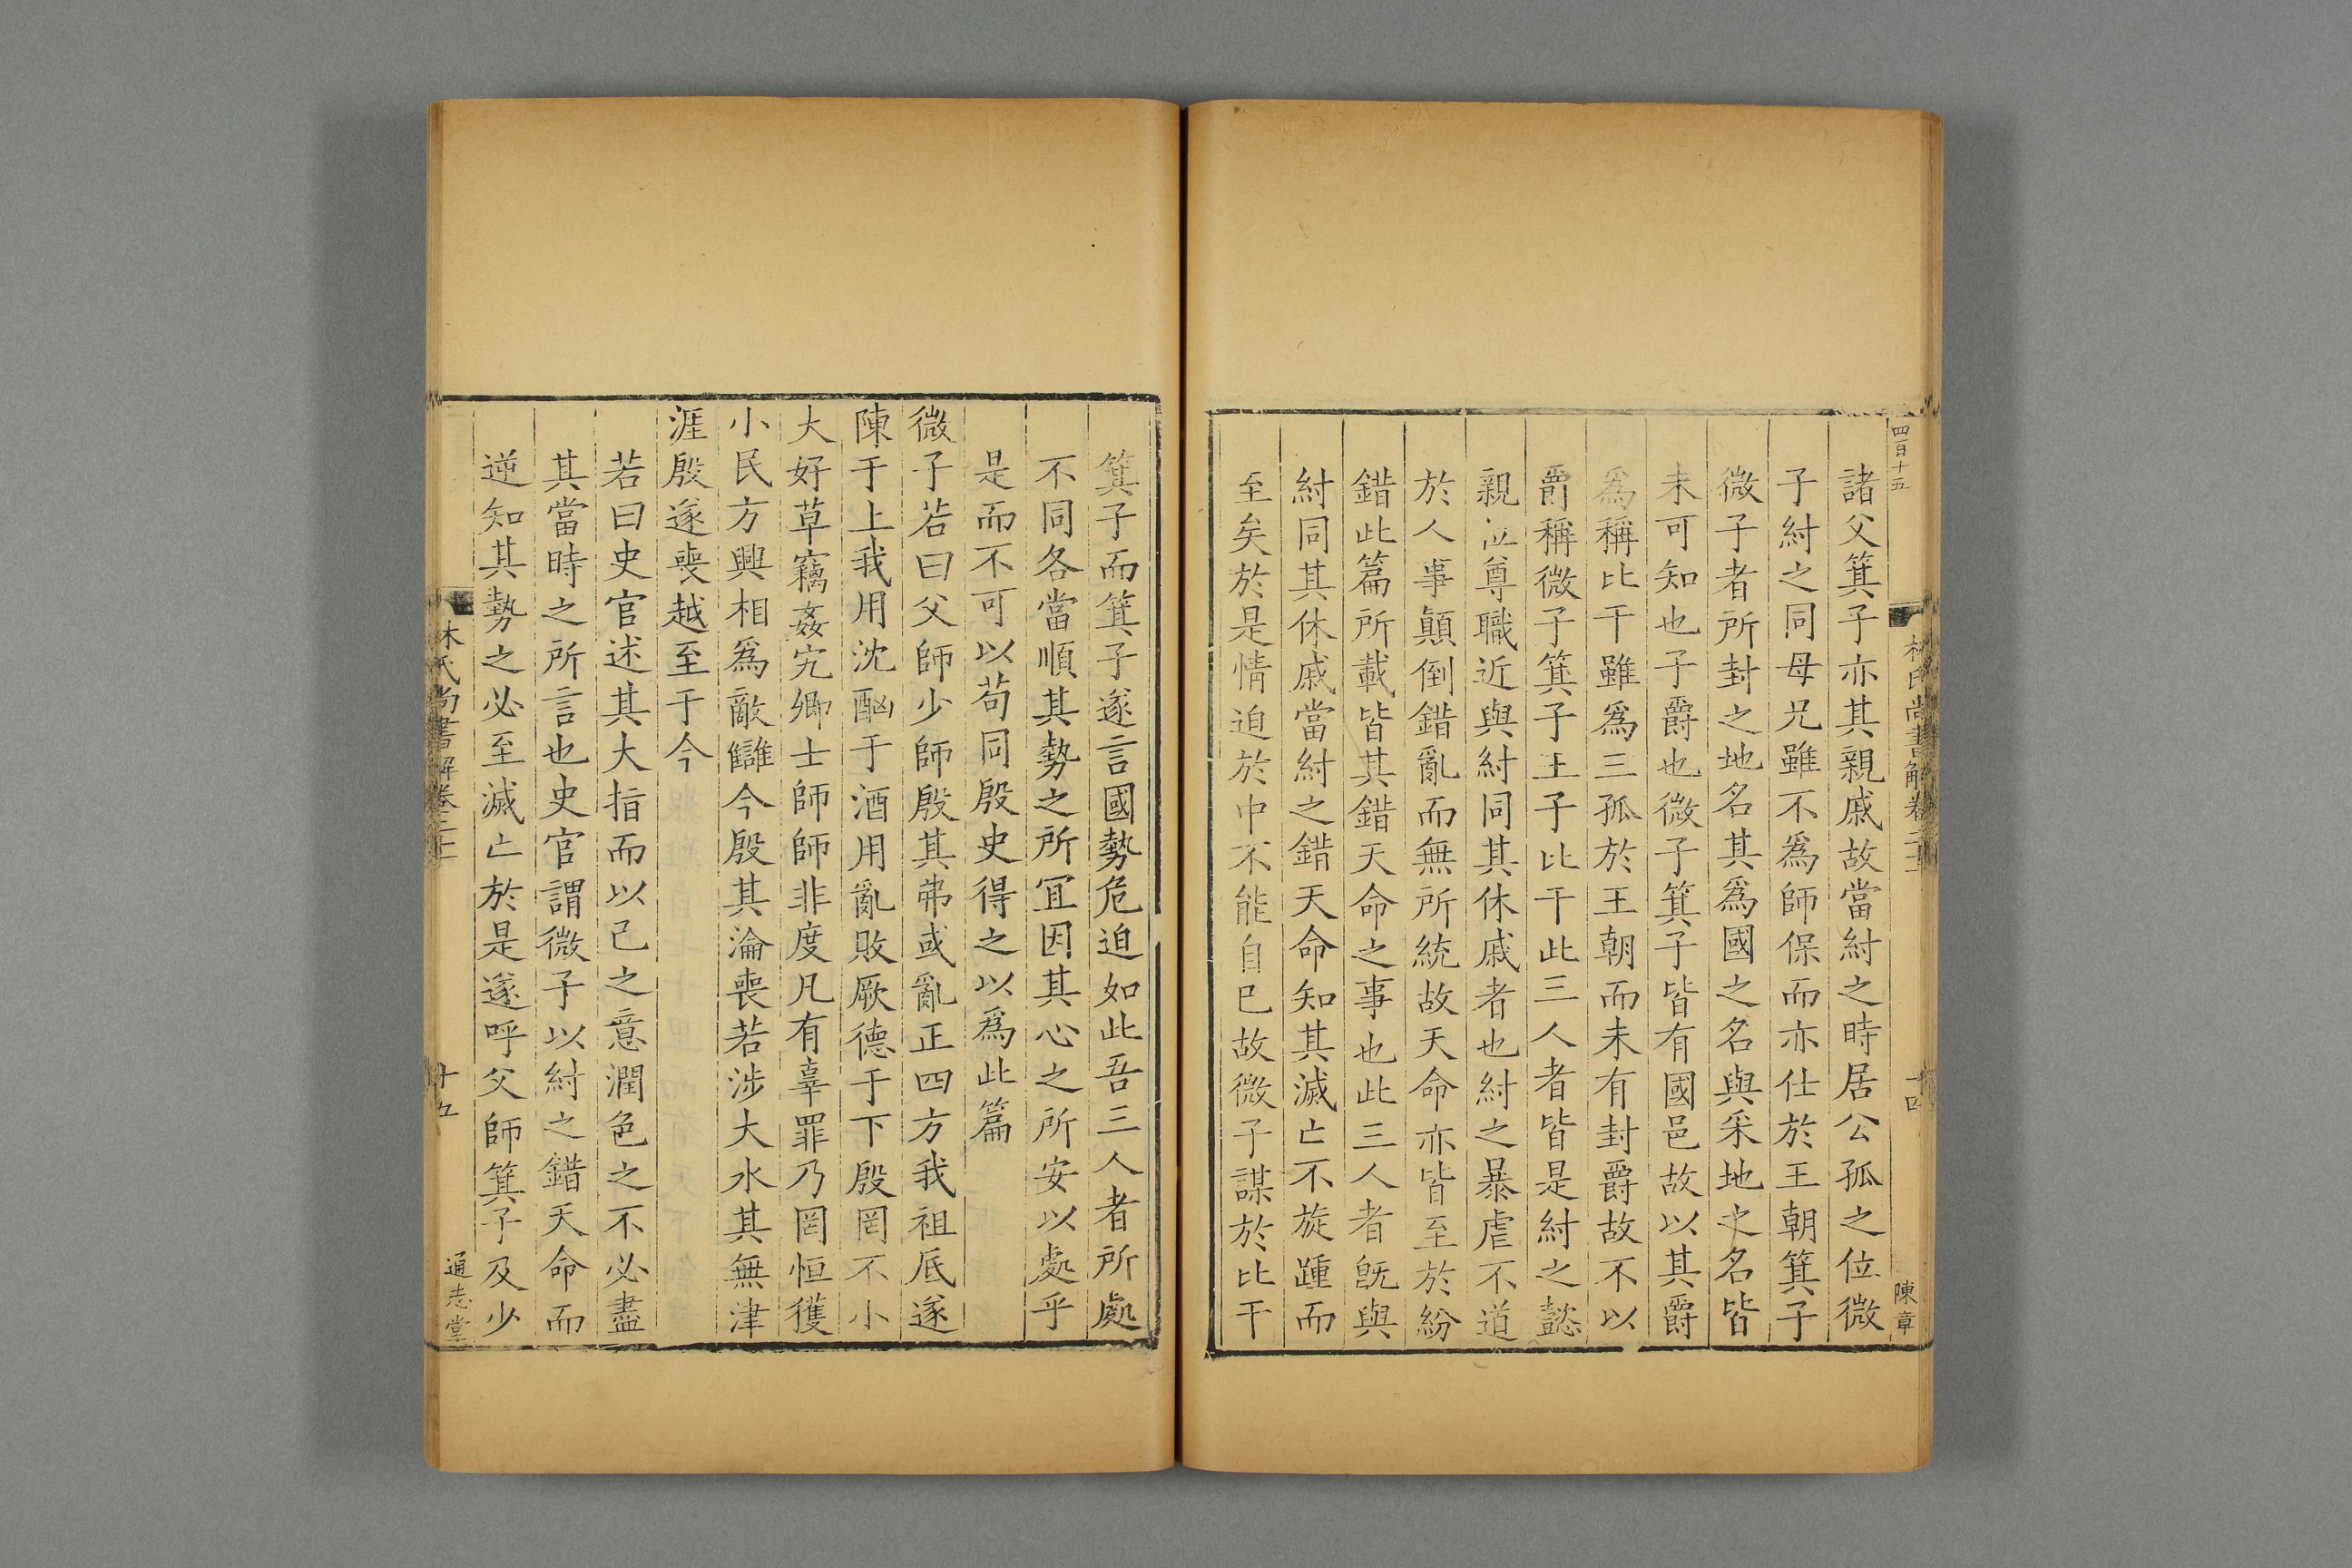 四百十五
陳章
諸父箕子亦其親戚故當紂之時居公孤之位微
子紂之同母兄雖不爲師保而亦仕於王朝箕子
微子者所封之地名其爲國之名與采地之名皆
未可知也子爵也微子箕子皆有國邑故以其爵
爲稱比干雖爲三孤於王朝而未有封爵故不以
爵稱微子箕子王子比干此三人者皆是紂之懿
親位尊職近與紂同其休戚者也紂之暴虐不道
於人事顛倒錯亂而無所統故天命亦皆至於紛
錯此篇所載皆其錯天命之事也此三人者旣與
紂同其休戚當紂之錯天命知其滅亡不旋踵而
至矣於是情迫於中不能自已故微子謀於比干
箕子而箕子遂言國勢危迫如此吾三人者所處
不同各當順其勢之所冝因其心之所安以處乎
是而不可以苟同殷史得之以爲此篇
微子若曰父師少師殷其弗或亂正四方我祖厎遂
陳于上我用沈酗于酒用亂敗厥德于下殷罔不小
大好草竊姦宄卿士師師非度凡有辜罪乃罔恒獲
小民方興相爲敵讎今殷其淪喪若涉大水其無津
涯殷遂喪越至于今
若曰史官述其大指而以己之意潤色之不必盡
其當時之所言也史官謂微子以紂之錯天命而
逆知其勢之必至滅亡於是遂呼父師箕子及少
林氏尚書解卷二十
十五
通志堂